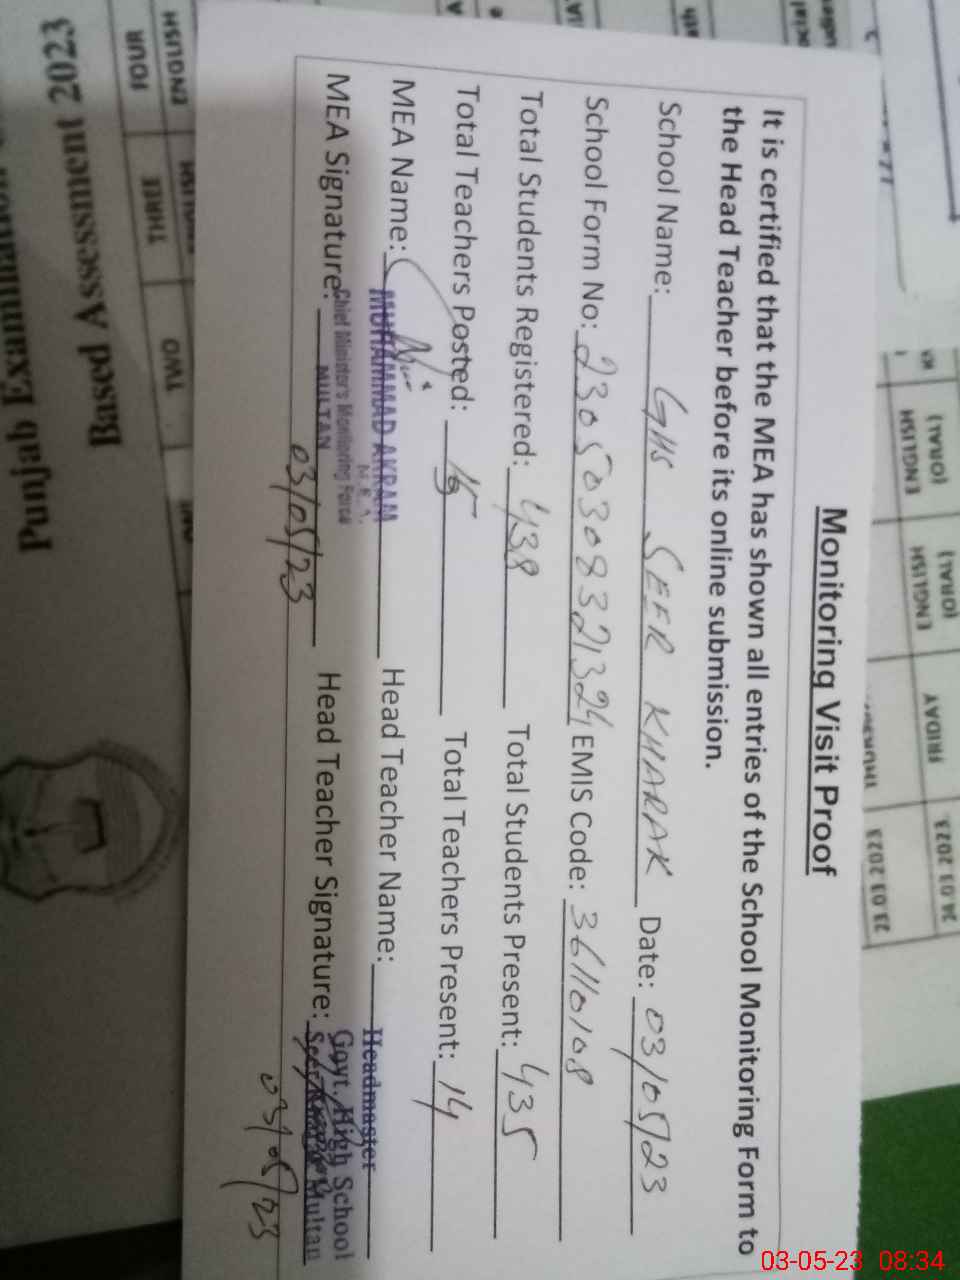 Monitoring Visit Proof
It is certified that the MEA has shown all entries of the School Monitoring Form to
the Head Teacher before its online submission.
School Name: GHS SEER KHARAK Date: 03/05/23
School Form No: 23050308321324 EMIS Code: 36110108
Total Students Registered: 438 Total Students Present: 435
Total Teachers Posted: 15 Total Teachers Present: 14
MEA Name: MUHAMMAD AKRAM Head Teacher Name: Headmaster
M.E.A.
Chief Minister's Monitoring Force Govt. High School
MEA Signature: MULTAN Head Teacher Signature: Seer Multan
03/05/23 03/05/23
Punjab
Based Assessment 2023
ENGLISH
FOUR
THREE
TWO
ENGLISH
(ORAL)
ENGLISH
(ORAL)
FRIDAY
24.03.2023
23.03.2023
03-05-23 08:34